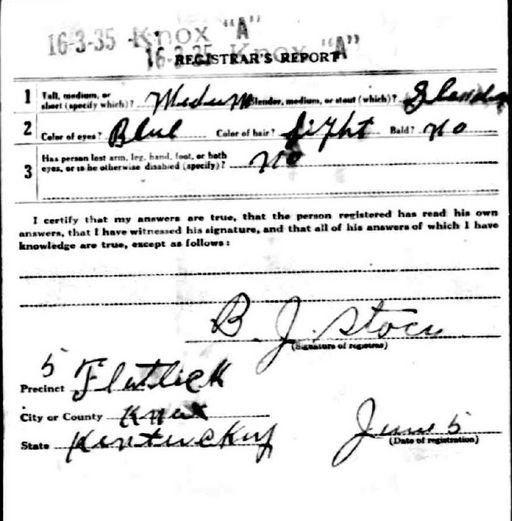 16-3-35 Knox "A"
16-3-35 Knox "A"
REGISTRAR'S REPORT
1 Tall, medium, or short (specify which)? Medium Slender, medium, or stout (which)? Slender
2 Color of eyes? Blue Color of hair? light Bald? no
3 Has person lost arm, leg, hand, foot, or both
eyes, or is he otherwise disabled (specify)? no
I certify that my answers are true, that the person registered has read his own
answers, that I have witnessed his signature, and that all of his answers of which I have
knowledge are true, except as follows:
B. J.
(Signature of registrar)
5
Precinct Flatlick
City or County Knox
State Kentucky June 5
(Date of registration)